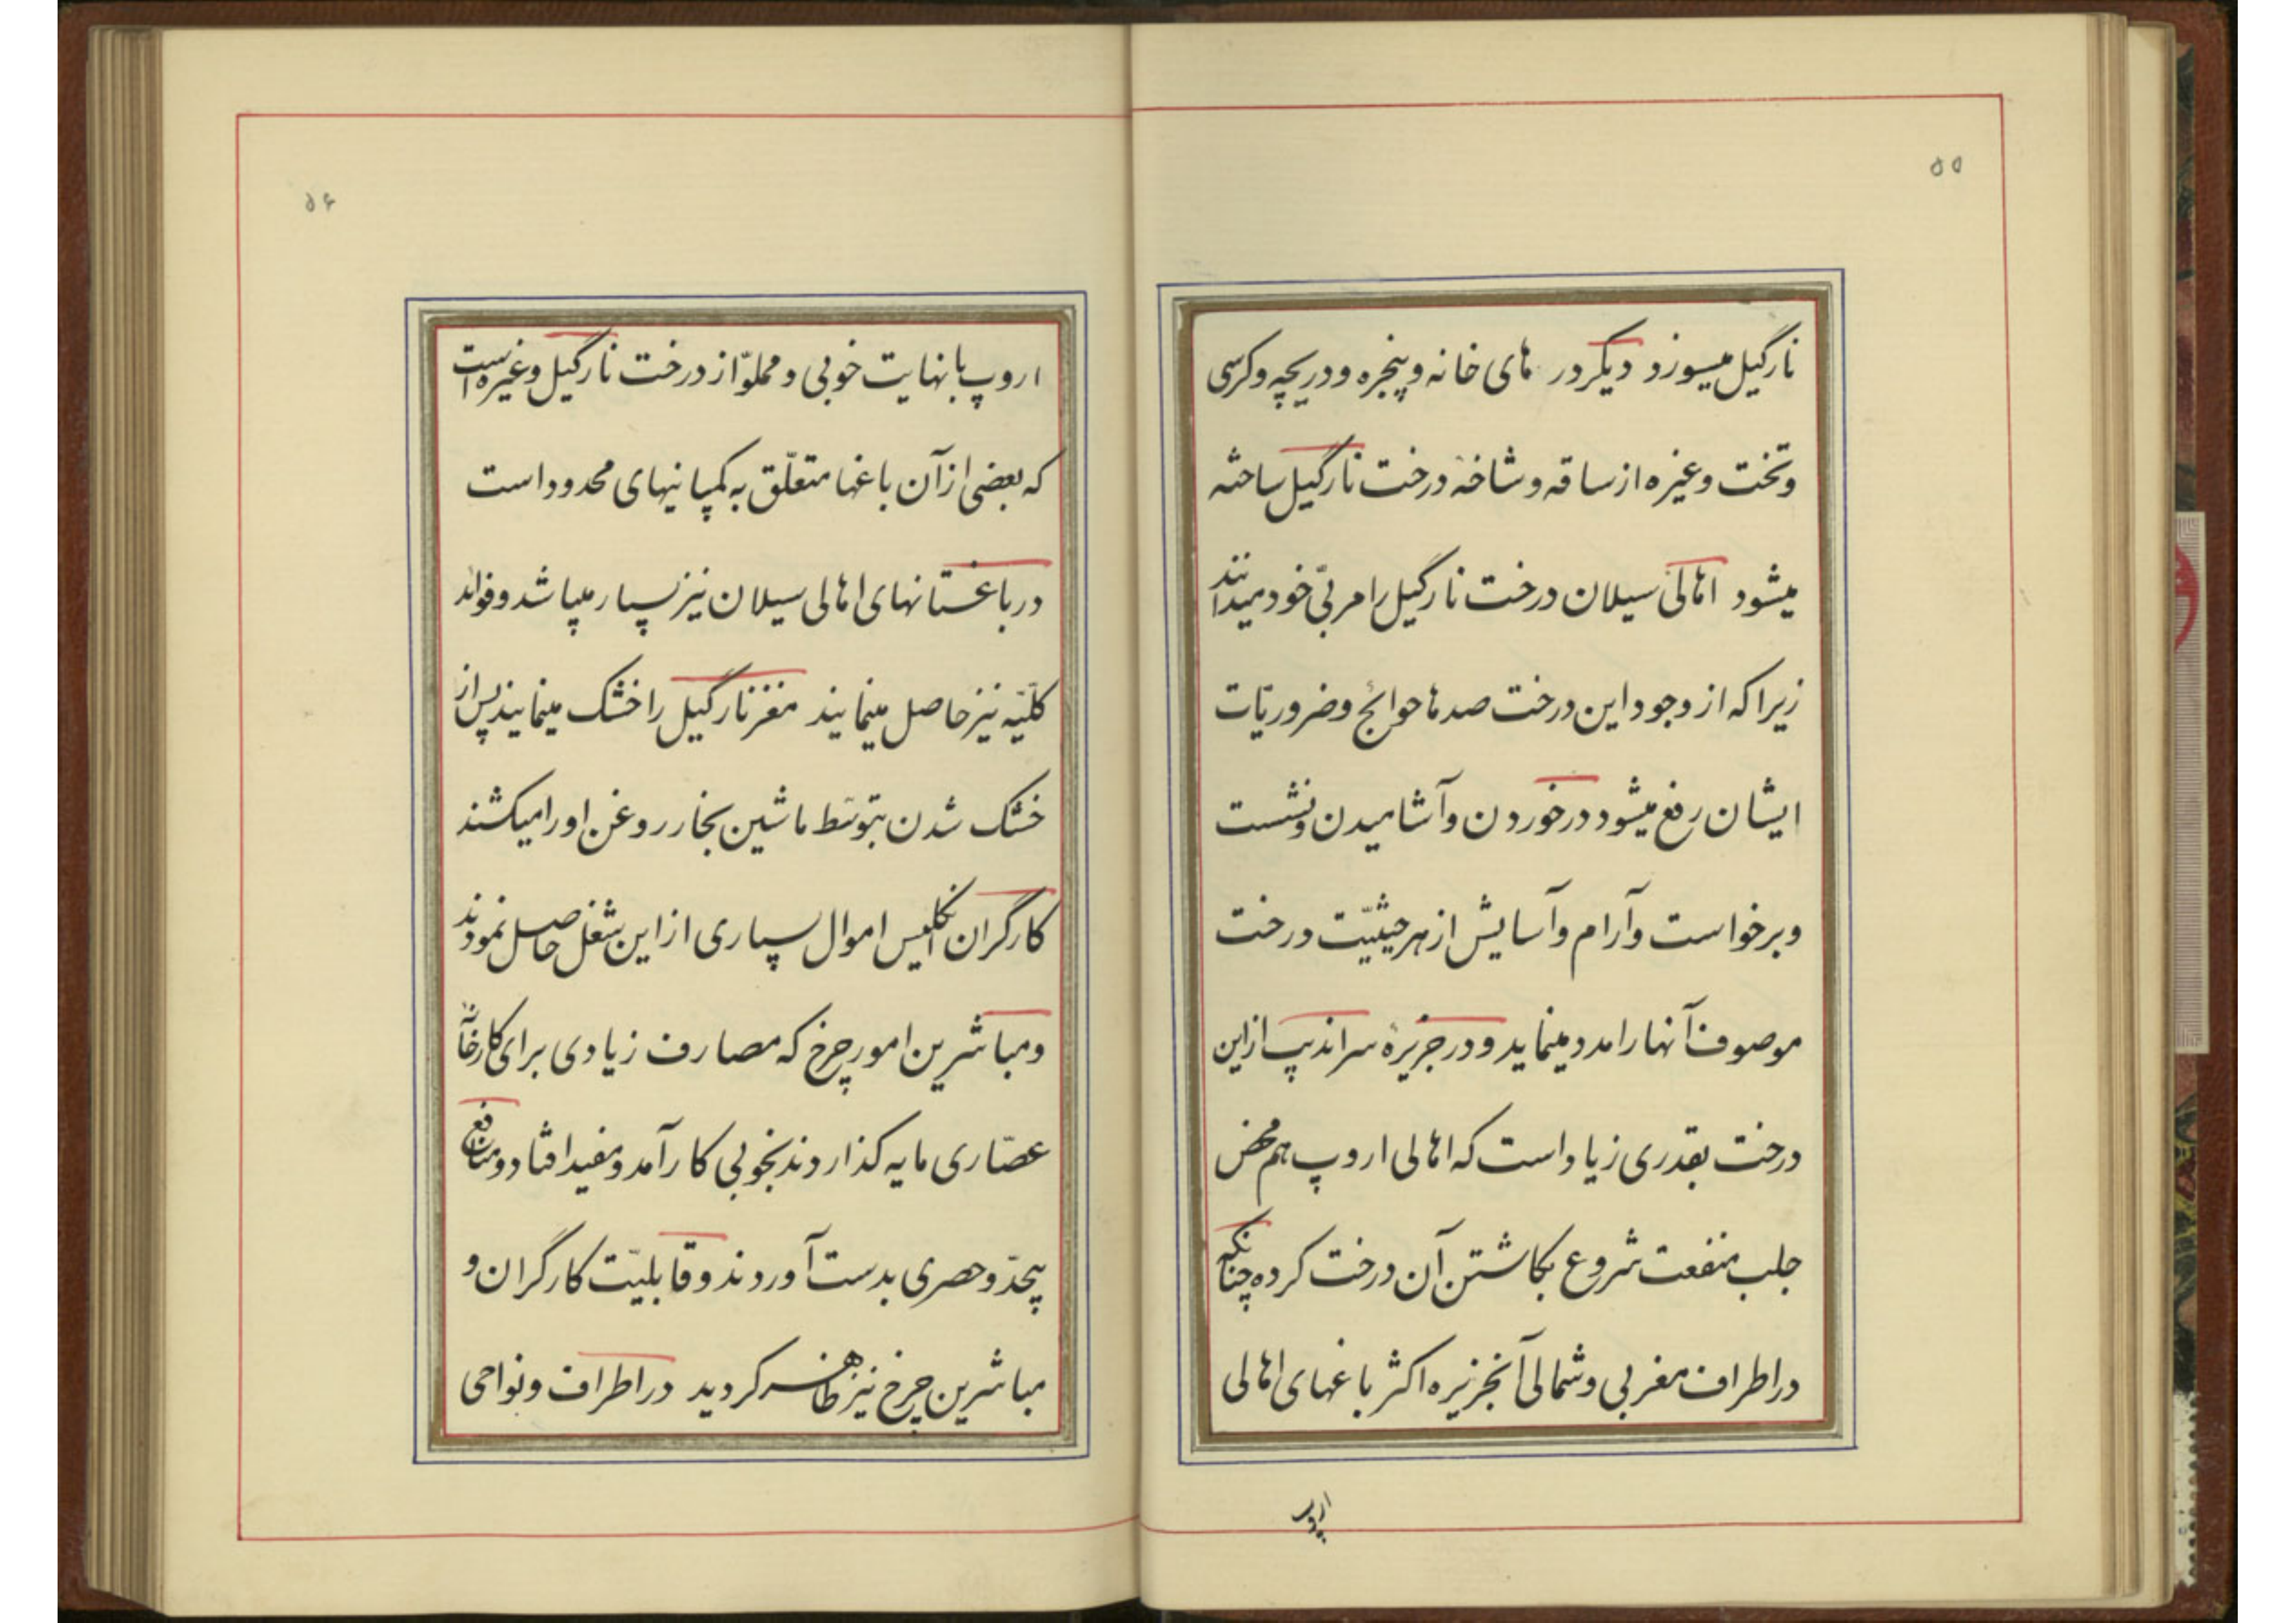 ۵۵
نارگیل میسوزد دیگر در های خانه و پنجره و دریچه و کرسی
و تخت و غیره از ساقه و شاخهٔ درخت نارگیل ساخته
میشود اهالی سیلان درخت نارگیل را مربّی خود میدانند
زیرا که از وجود این درخت صدها حوائج و ضروریّات
ایشان رفع میشود در خوردن و آشامیدن و نشست
و برخواست و آرام و آسایش از هر حیثیّت درخت
موصوف آنها را مدد مینماید و در جزیرهٔ سراندیپ از این
درخت بقدری زیاد است که اهالی اروپ هم محض
جلب منفعت شروع بکاشتن آن درخت کرده چنانکه
در اطراف مغربی و شمالی آنجزیره اکثر باغهای اهالی
اروپ
۵۶
اروپ با نهایت خوبی و مملوّ از درخت نارگیل و غیره است
که بعضی از آن باغها متعلّق به کمپانیهای محدود است
در باغستانهای اهالی سیلان نیز بسیار میباشد و فوائد
کلّیّه نیز حاصل مینمایند مغز نارگیل را خشک مینمایند پس از
خشک شدن بتوسّط ماشین بخار روغن او را میکشند
کارگران انگلیس اموال بسیاری از این شغل حاصل نمودند
و مباشرین امور چرخ که مصارف زیادی برای کارخانهٔ
عصّاری مایه گذاردند بخوبی کار آمد و مفید افتاد و منافع
بیحدّ و حصری بدست آوردند و قابلیّت کارگران و
مباشرین چرخ نیز ظاهر گردید در اطراف و نواحی